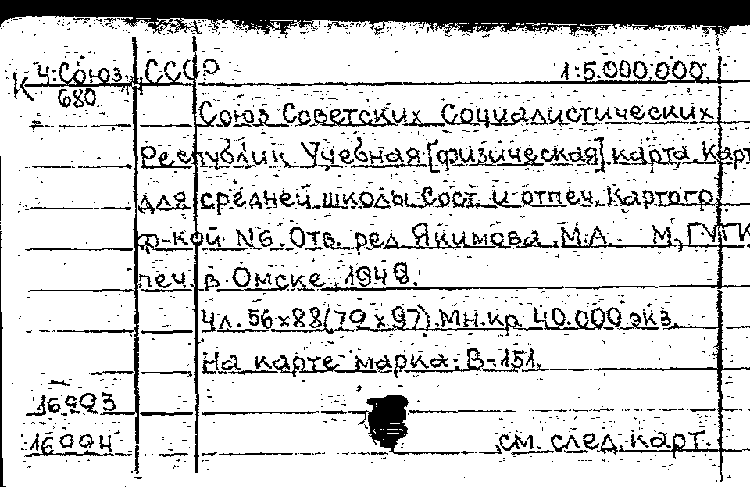 К 4:Союз СССР 1:5.000.000.
680
Союз Советских Социалистических
Республик Учебная [физическая] карта. Карт
для средней школы Сост. и отпеч. Картогр.
ф-кой №6. Отв. ред. Якимова М.А. М., ГУГК
печ. в Омске, 1949.
4л. 56х88(79х97). Мн.кр. 40.000 экз.
На карте марка: В-151.
16993
16994 см. след. карт.